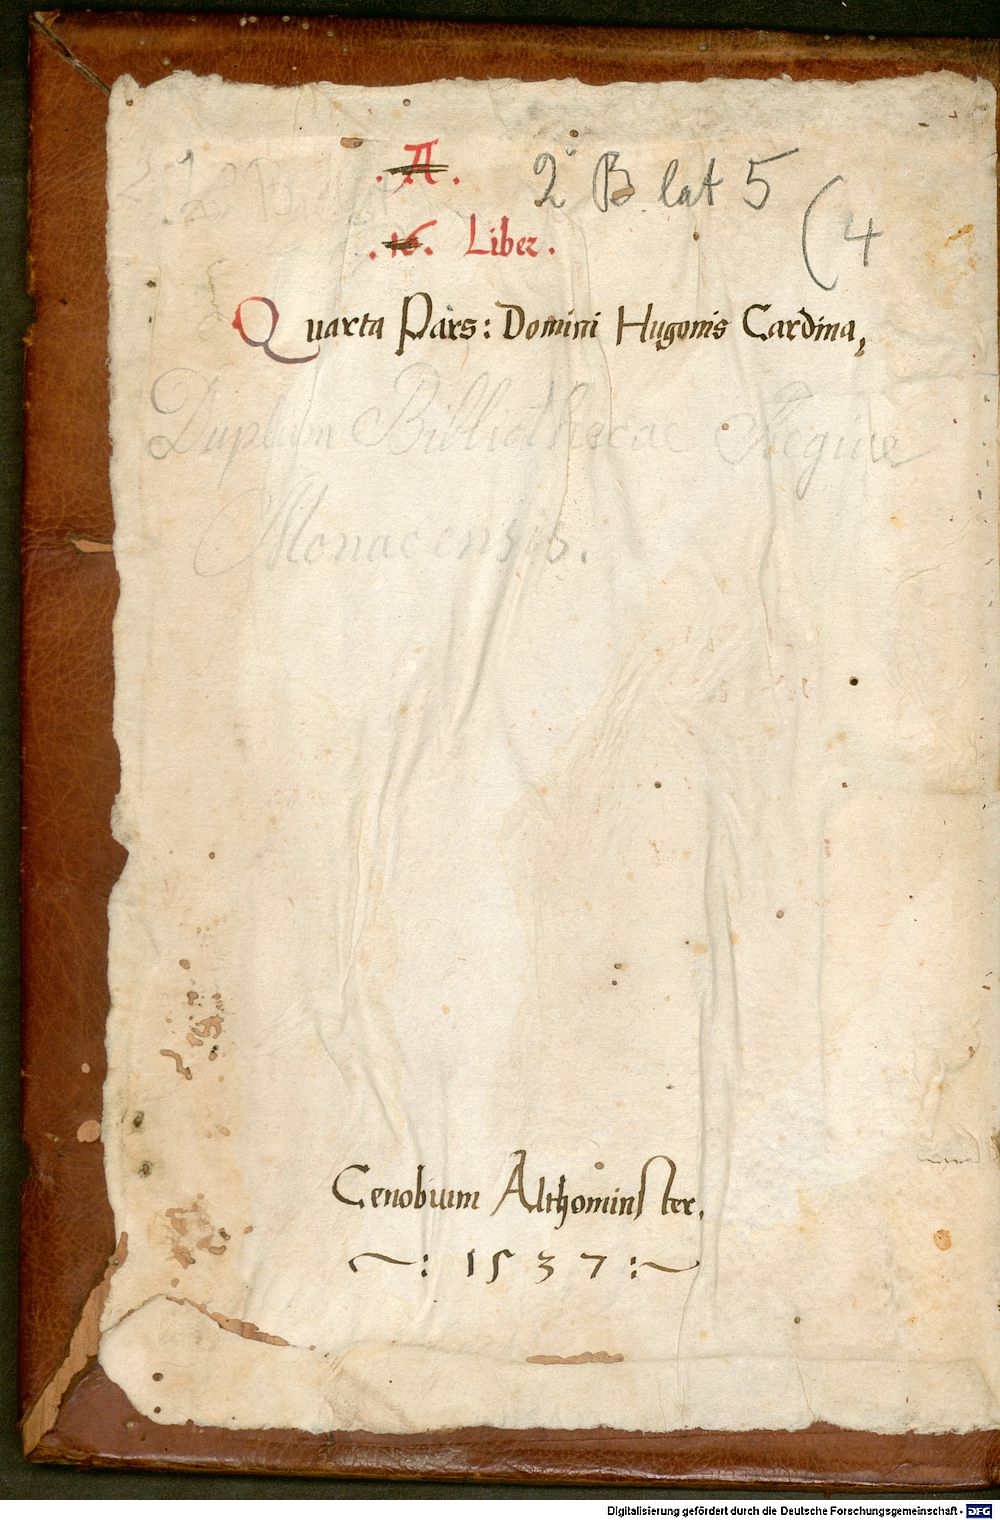 .A.
2° B lat 5
(4
.16. Liber.
Quarta Pars: Domini Hugonis Cardina,
Duplum Bibliothecae Regiae
Monacensis.
Cenobium Althominster,
~: 1537 :~
Digitalisierung gefördert durch die Deutsche Forschungsgemeinschaft - DFG